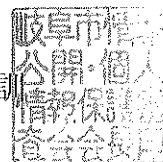 岐阜市情
公開・個人
情報保護
審査会